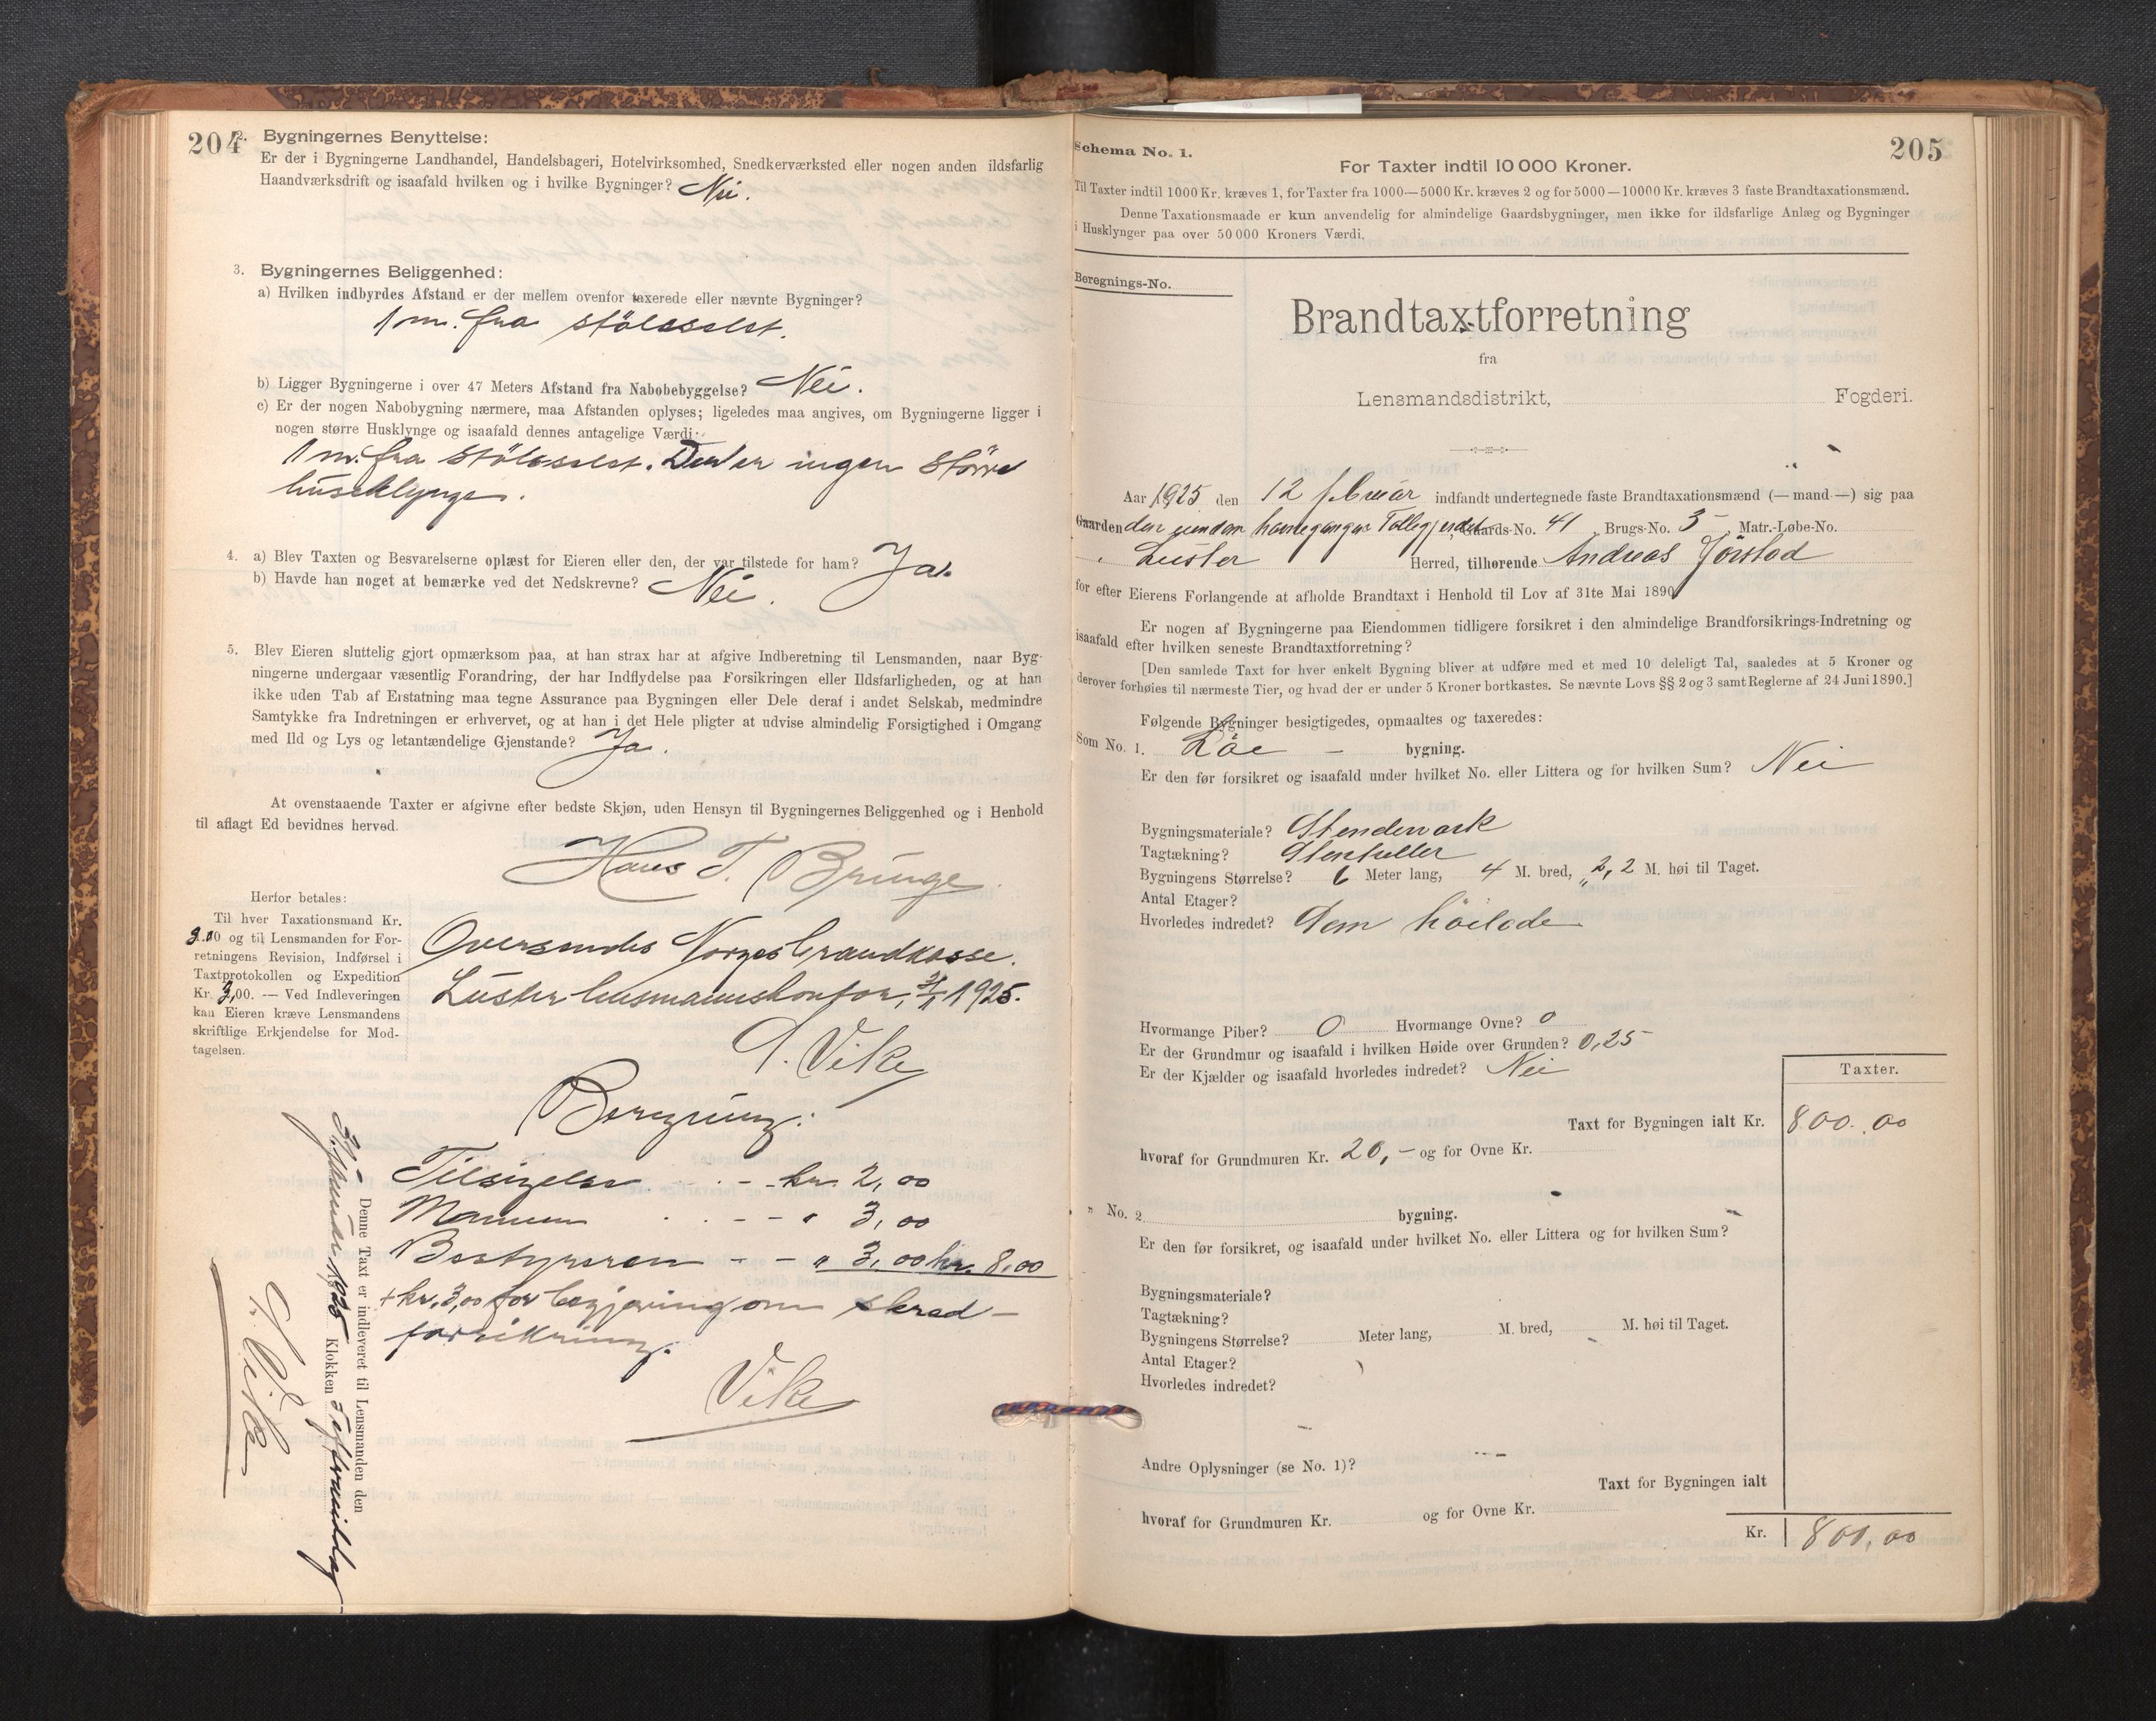 204
2. Bygningernes Benyttelse:
Er der i Bygningerne Landhandel, Handelsbageri, Hotelvirksomhed, Snedkerværksted eller nogen anden ildsfarlig
Haandværksdrift og isaafald hvilken og i hvilke Bygninger? Nei.
3. Bygningernes Beliggenhed:
a) Hvilken indbyrdes Afstand er der mellem ovenfor taxerede eller nævnte Bygninger?
1 m. fra stölsselet.
b) Ligger Bygningerne i over 47 Meters Afstand fra Nabobebyggelse? Nei.
c) Er der nogen Nabobygning nærmere, maa Afstanden oplyses; ligeledes maa angives, om Bygningerne ligger i
nogen større Husklynge og isaafald dennes antagelige Værdi:
1 m. fra stölsselet. Der er ingen större
husklynge.
4. a) Blev Taxten og Besvarelserne oplæst for Eieren eller den, der var tilstede for ham? Ja.
b) Havde han noget at bemærke ved det Nedskrevne? Nei.
5. Blev Eieren sluttelig gjort opmærksom paa, at han strax har at afgive Indberetning til Lensmanden, naar Byg-
ningerne undergaar væsentlig Forandring, der har Indflydelse paa Forsikringen eller Ildsfarligheden, og at han
ikke uden Tab af Erstatning maa tegne Assurance paa Bygningen eller Dele deraf i andet Selskab, medmindre
Samtykke fra Indretningen er erhvervet, og at han i det Hele pligter at udvise almindelig Forsigtighed i Omgang
med Ild og Lys og letantændelige Gjenstande? Ja.
At ovenstaaende Taxter er afgivne efter bedste Skjøn, uden Hensyn til Bygningernes Beliggenhed og i Henhold
til aflagt Ed bevidnes herved.
Hans T. Bringe.
Herfor betales:
Til hver Taxationsmand Kr.
3.00 og til Lensmanden for For-
retningens Revision, Indførsel i
Taxtprotokollen og Expedition
Kr. 3,00. — Ved Indleveringen
kan Eieren kræve Lensmandens
skriftlige Erkjendelse for Mod-
tagelsen.
Oversendes Norges brandkasse.
Luster lensmannskontor, 3/1 1925.
S. Vike
Beregning:
Tilsigelse - - kr. 2,00
Mannen - - " 3,00
Bestyreren - - " 3,00 kr. 8,00
+ kr. 3,00 for begjæring om skred-
forsikring.
Vike
Denne Taxt er indleveret til Lensmanden den
3. januar 1925 Klokken
S. Vike
205
Schema No. 1.
For Taxter indtil 10 000 Kroner.
Til Taxter indtil 1000 Kr. kræves 1, for Taxter fra 1000—5000 Kr. kræves 2 og for 5000—10000 Kr. kræves 3 faste Brandtaxationsmænd.
Denne Taxationsmaade er kun anvendelig for almindelige Gaardsbygninger, men ikke for ildsfarlige Anlæg og Bygninger
i Husklynger paa over 50 000 Kroners Værdi.
Beregnings-No.
Brandtaxtforretning
fra
Lensmandsdistrikt, Fogderi.
Aar 1925 den 12 februar indfandt undertegnede faste Brandtaxationsmænd (—mand—) sig paa
Gaarden den eiendom havnegangen Tollegjerdet, Gaards-No. 41, Brugs-No. 3, Matr.-Løbe-No.
i Luster Herred, tilhørende Andreas Jörstad
for efter Eierens Forlangende at afholde Brandtaxt i Henhold til Lov af 31te Mai 1890.
Er nogen af Bygningerne paa Eiendommen tidligere forsikret i den almindelige Brandforsikrings-Indretning og
isaafald efter hvilken seneste Brandtaxtforretning?
[Den samlede Taxt for hver enkelt Bygning bliver at udføre med et med 10 deleligt Tal, saaledes at 5 Kroner og
derover forhøies til nærmeste Tier, og hvad der er under 5 Kroner bortkastes. Se nævnte Lovs §§ 2 og 3 samt Reglerne af 24 Juni 1890.]
Følgende Bygninger besigtigedes, opmaaltes og taxeredes:
Som No. 1. Löe - bygning.
Er den før forsikret og isaafald under hvilket No. eller Littera og for hvilken Sum? Nei
Bygningsmateriale? Stenderverk
Tagtækning? Stenheller
Bygningens Størrelse? 6 Meter lang, 4 M. bred, 2,2 M. høi til Taget.
Antal Etager?
Hvorledes indredet? Som höilade
Hvormange Piber? 0 Hvormange Ovne? 0
Er der Grundmur og isaafald i hvilken Høide over Grunden? 0,25
Er der Kjælder og isaafald hvorledes indredet? Nei
Taxter.
Taxt for Bygningen ialt Kr. 800.00
hvoraf for Grundmuren Kr. 20,- og for Ovne Kr.
" No. 2 bygning.
Er den før forsikret, og isaafald under hvilket No. eller Littera og for hvilken Sum?
Bygningsmateriale?
Tagtækning?
Bygningens Størrelse? Meter lang, M. bred, M. høi til Taget.
Antal Etager?
Hvorledes indredet?
Andre Oplysninger (se No. 1)?
Taxt for Bygningen ialt
hvoraf for Grundmuren Kr. og for Ovne Kr.
Kr. 800,00